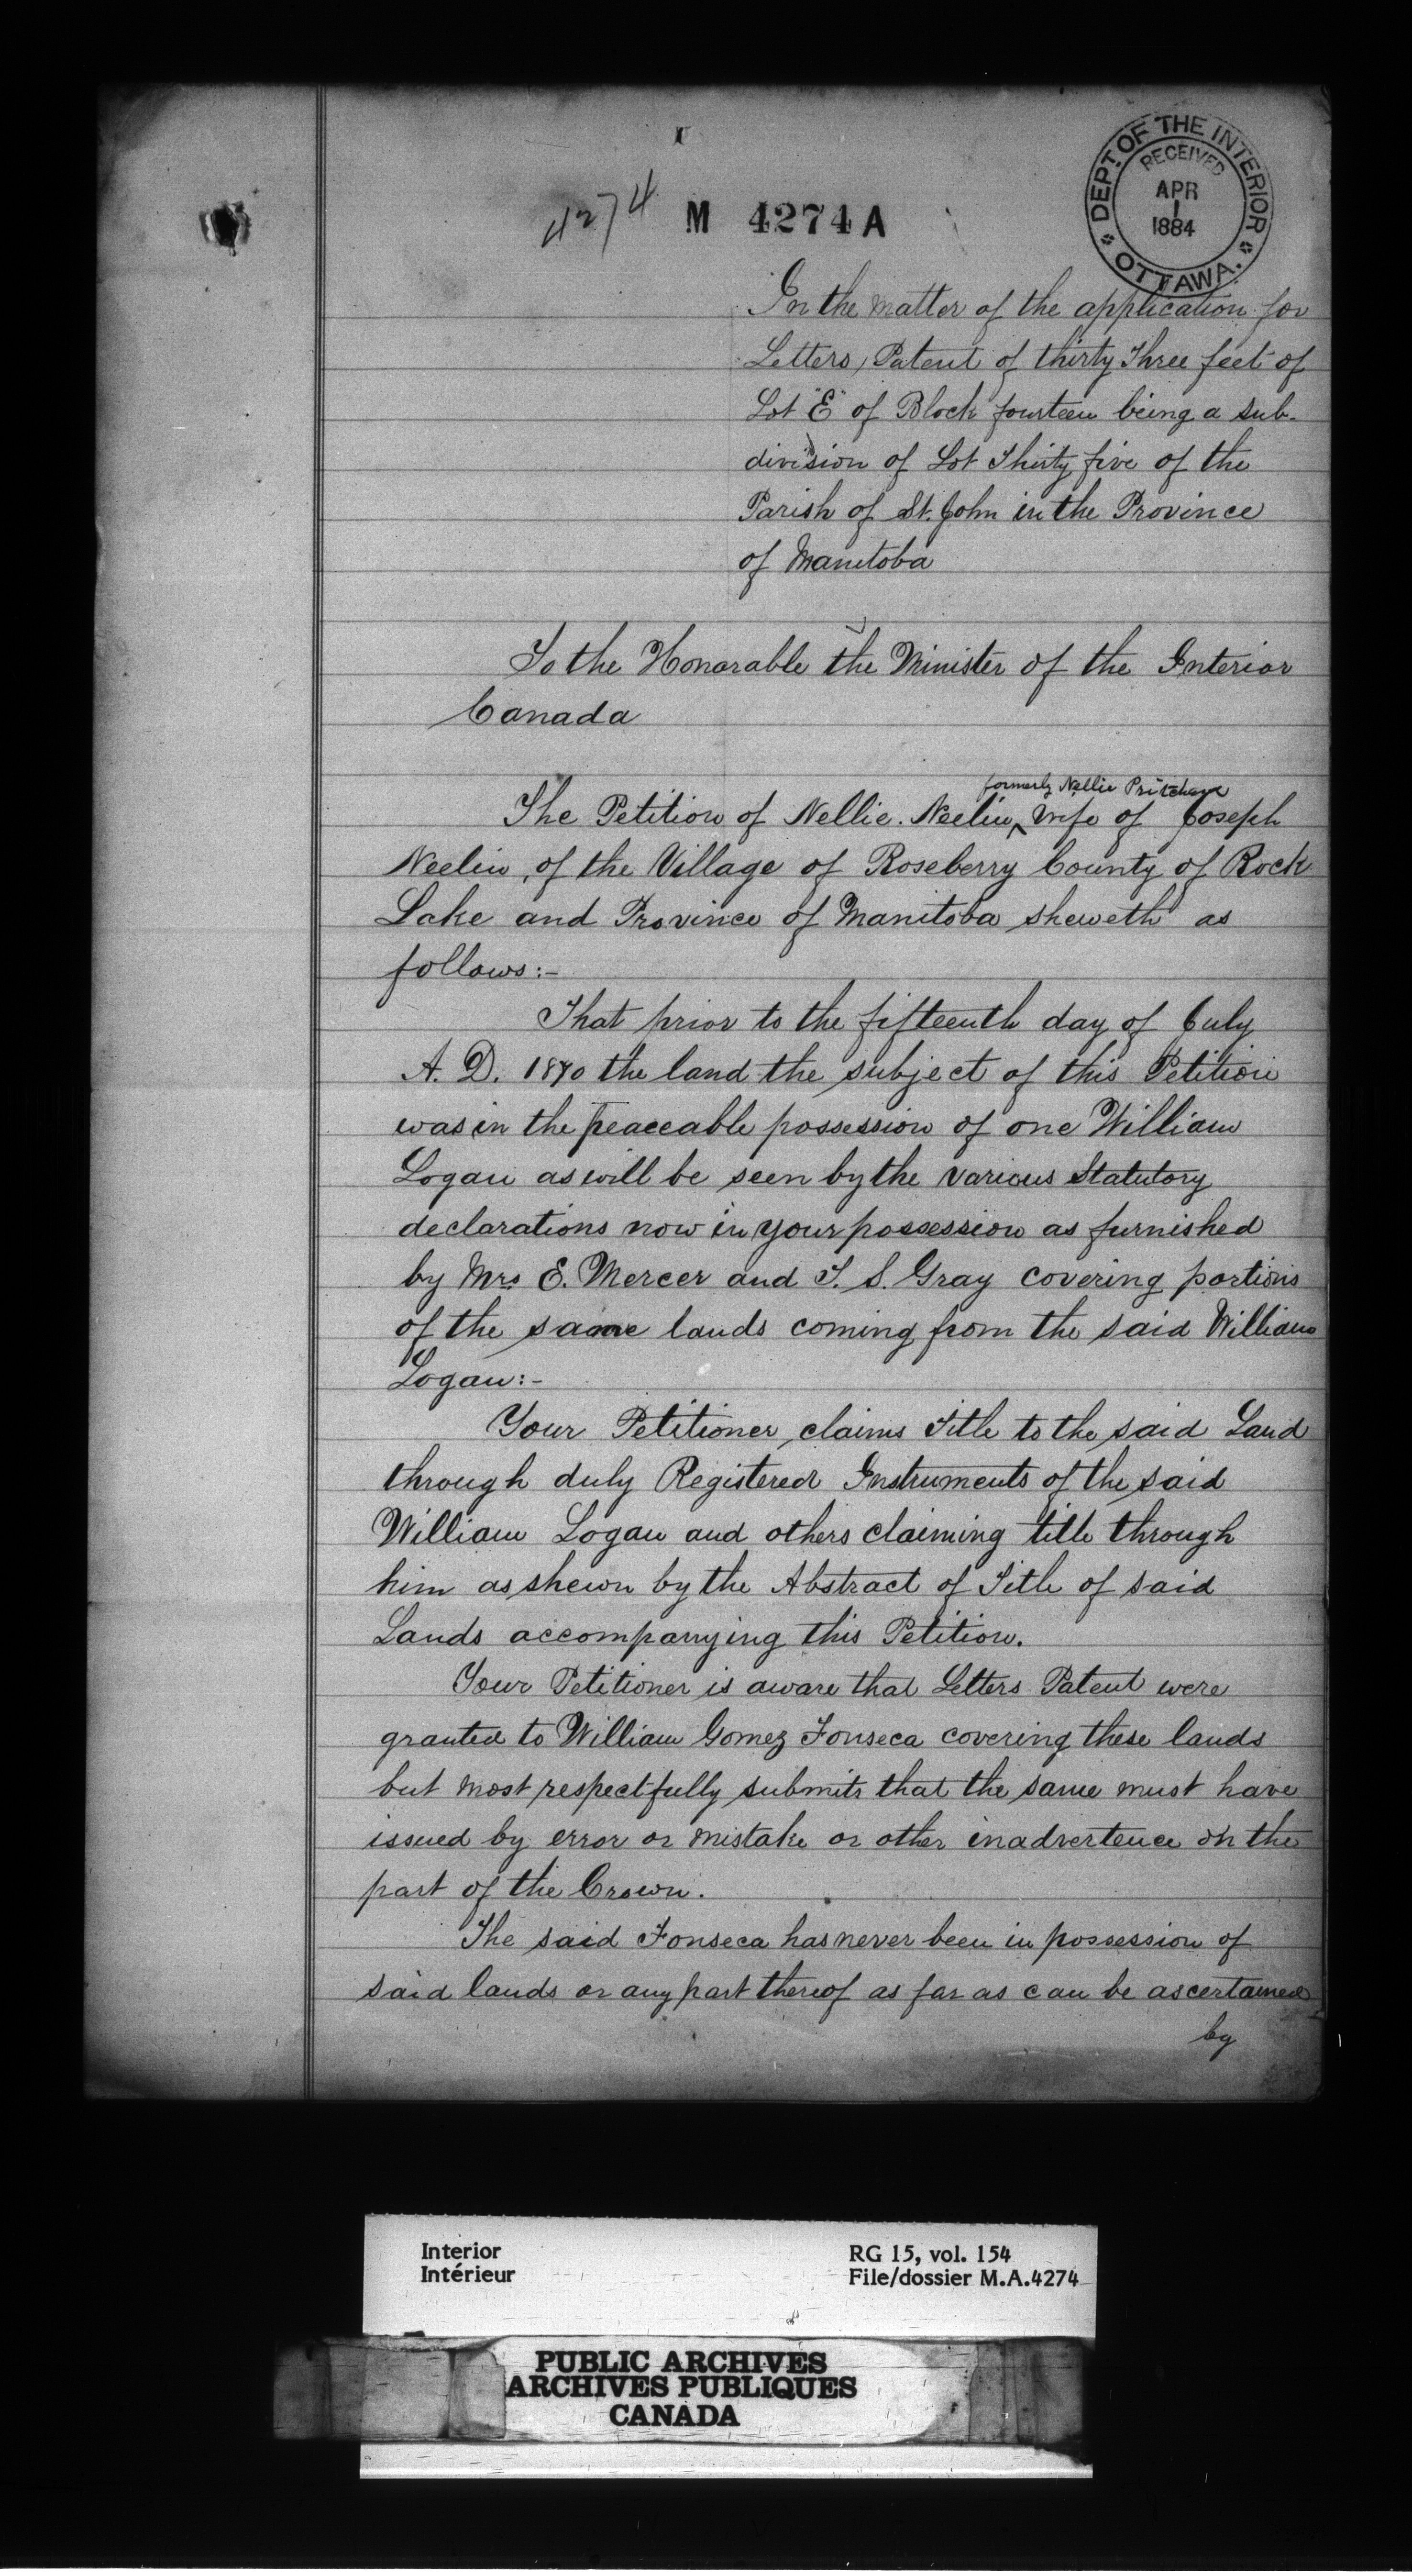 4274
M 4274 A
DEPT. OF THE INTERIOR
RECEIVED
APR
1
1884
OTTAWA.
In the matter of the application for
Letters Patent of thirty three feet of
Lot "E" of Block fourteen being a sub-
division of Lot Thirty five of the
Parish of St. John in the Province
of Manitoba
To the Honorable the Minister of the Interior
Canada
formerly Nellie
The Petition of Nellie Neelin, wife of Joseph
Neelin, of the Village of Roseberry County of Rock
Lake and Province of Manitoba sheweth as
follows:-
That prior to the fifteenth day of July
A. D. 1870 the land the subject of this Petition
was in the peaceable possession of one William
Logan as will be seen by the various Statutory
declarations now in your possession as furnished
by Mrs E. Mercer and T. S. Gray covering portions
of the same lands coming from the said William
Logan:-
Your Petitioner claims title to the said Land
through duly Registered Instruments of the said
William Logan and others claiming title through
him as shewn by the Abstract of Title of said
Lands accompanying this Petition.
Your Petitioner is aware that Letters Patent were
granted to William Gomez Fonseca covering these lands
but most respectfully submits that the same must have
issued by error or mistake or other inadvertence on the
part of the Crown.
The said Fonseca has never been in possession of
said lands or any part thereof as far as can be ascertained
by
Interior
Intérieur
RG 15, vol. 154
File/dossier M.A.4274
PUBLIC ARCHIVES
ARCHIVES PUBLIQUES
CANADA